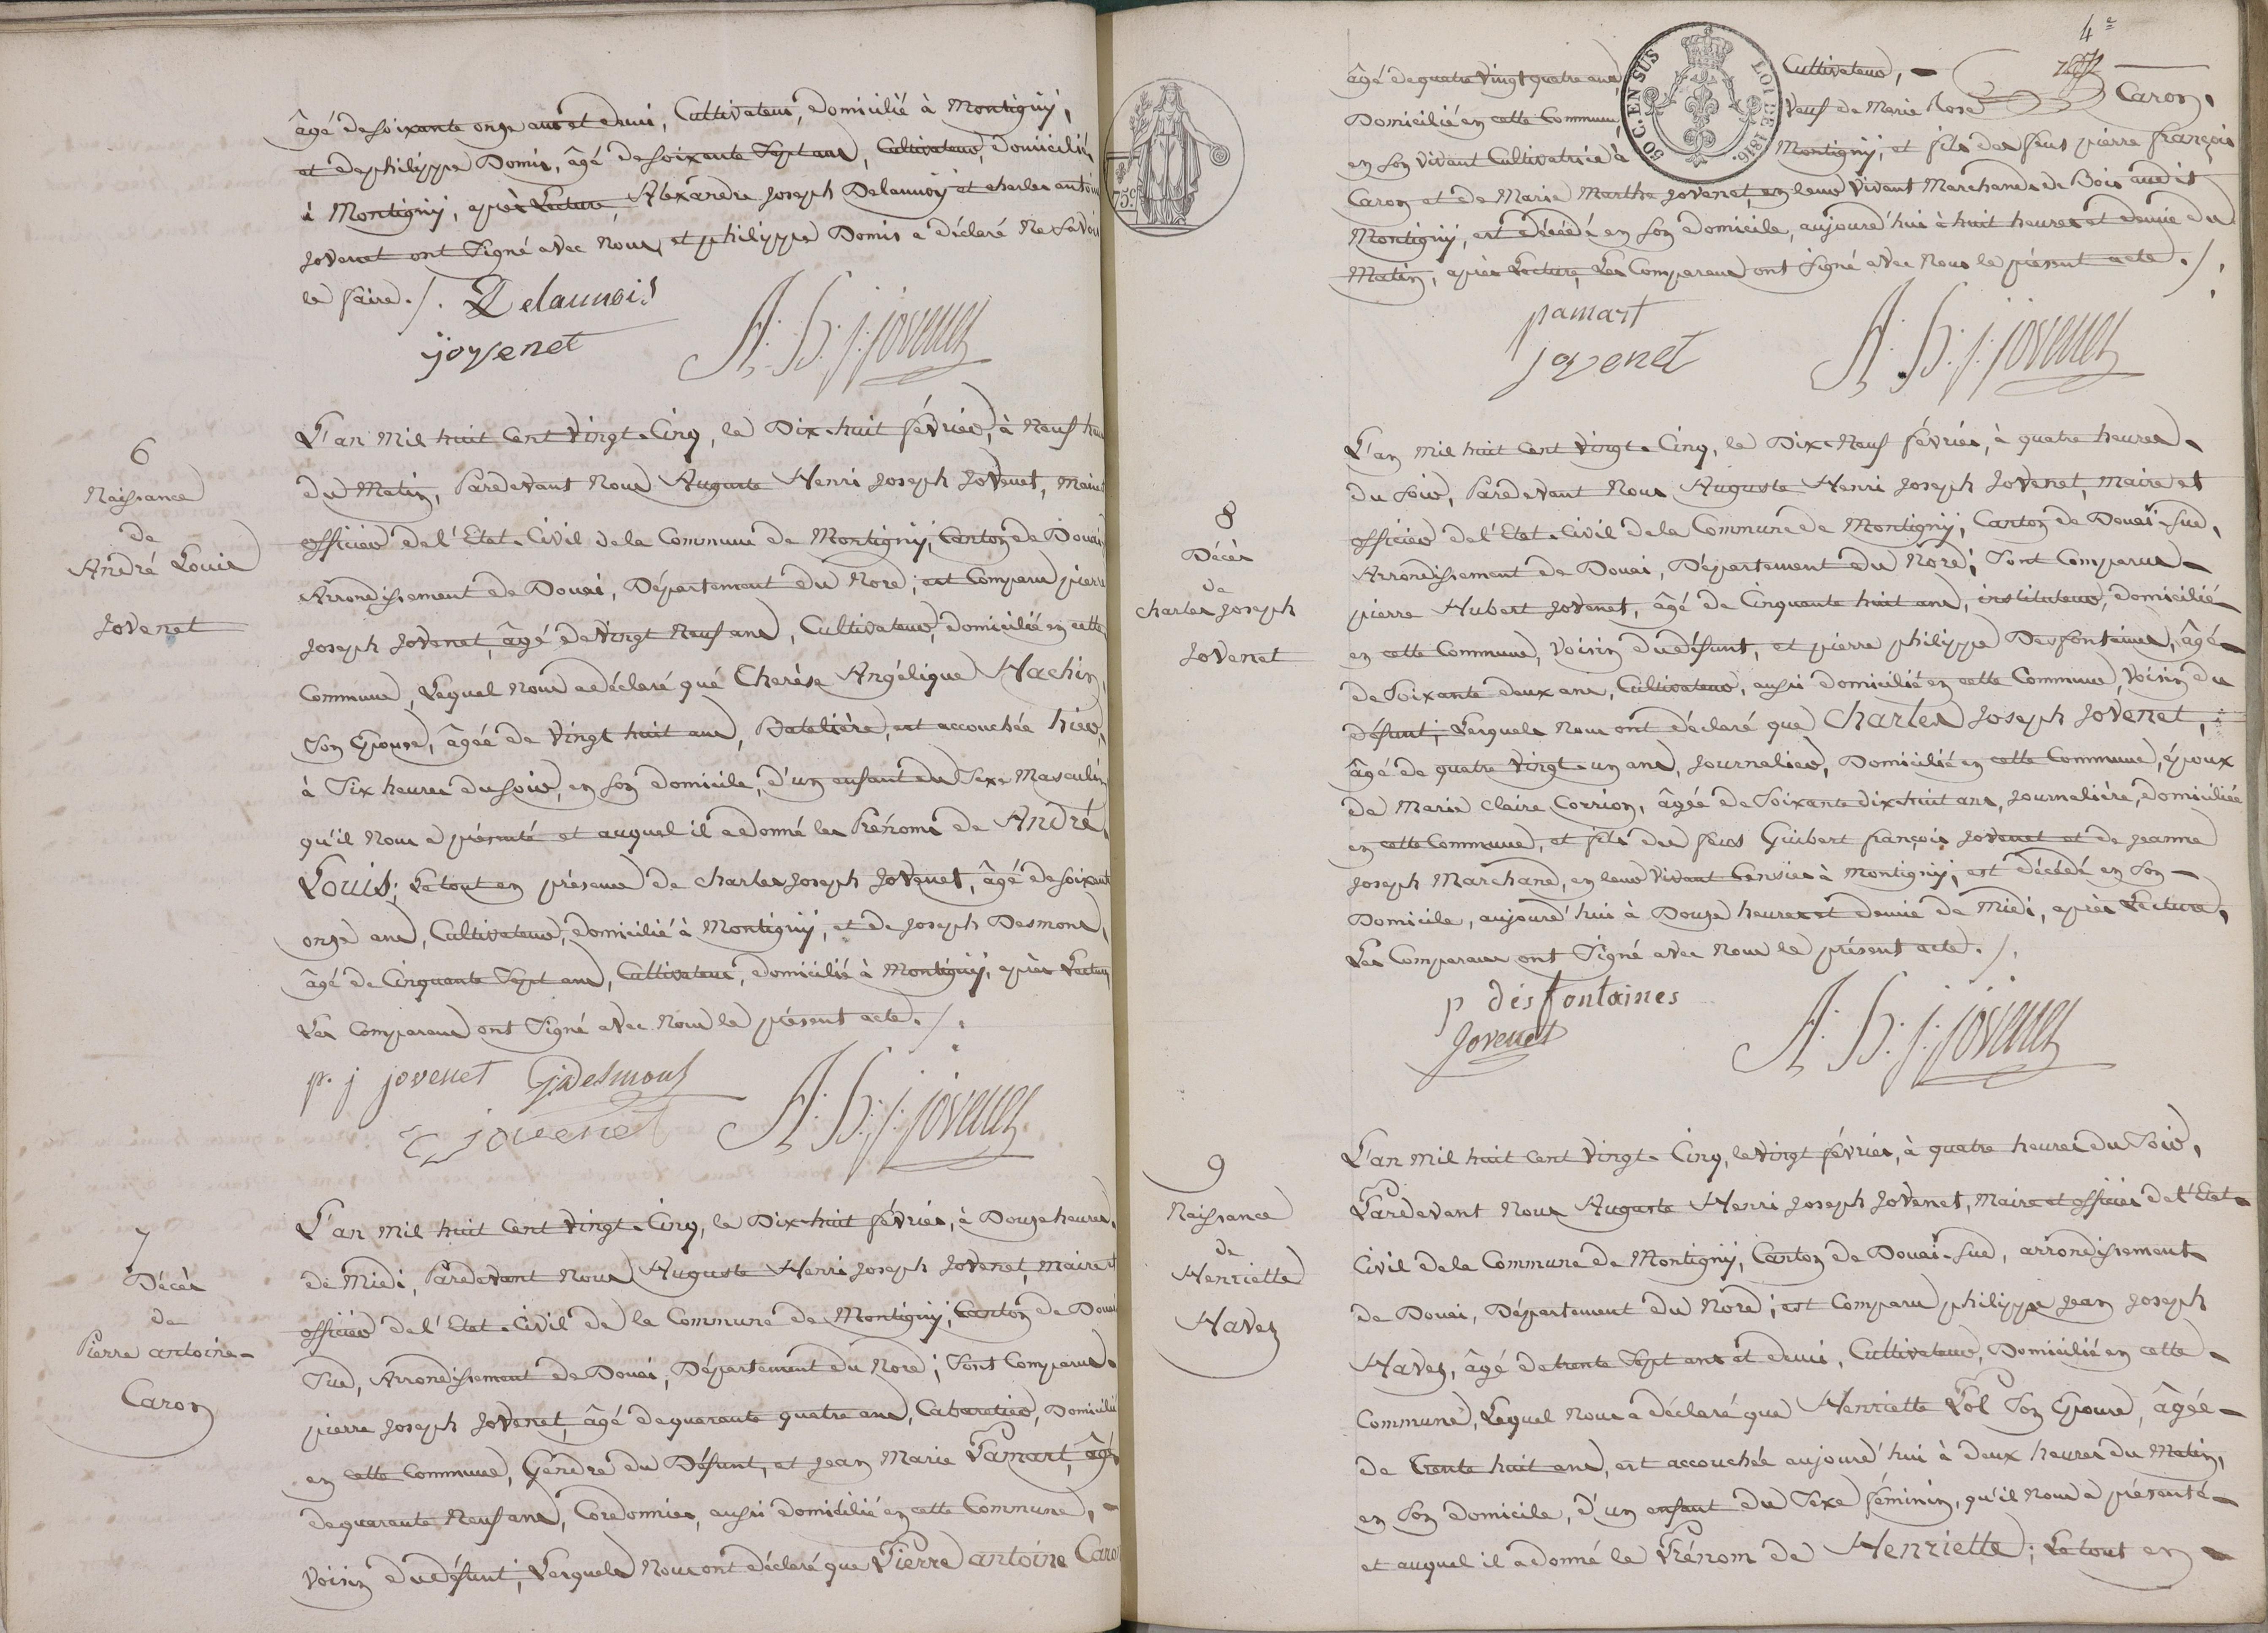 âgé de soixante onze ans et demi, Cultivateur, domicilié à Montigny,
et de philippe Domis, âgé de soixante Sept ans, Cultivateur, domicilié
à Montigny, après Lecture, Alexandre Joseph Delaunoy et charles antoine
Jovenet ont Signé avec Nous, et philippe Domis a déclaré Ne Savoir
le faire ./. Delaunois
jovenet A: H: j: jovenet
6
Naissance
de
André Louis
Jovenet
L'an Mil huit Cent Vingt-Cinq, le Dix-huit février, à Neuf heu
du Matin, Pardevant Nous Auguste Henri Joseph Jovenet, Maire
officier de l'Etat-Civil de la Commune de Montigny, Canton de Douai
Arrondissement de Douai, Département du Nord; est Comparu pierre
Joseph Jovenet, âgé de Vingt Neuf ans, Cultivateur, domicilié en cette
Commune, Lequel Nous a déclaré qué Thérèse Angélique Hachin,
Son Epouse, âgée de Vingt huit ans, Batelière, est accouchée hier,
à Six heures du Soir, en Son domicile, d'un enfant du Sexe Masculin
qu'il Nous a présenté et auquel il a donné les Prénoms de André,
Louis; Le tout en présence de charles Joseph Jovenet, âgé de soixante
onze ans, Cultivateur, domicilié à Montigny, et de Joseph Desmons,
âgé de Cinquante Sept ans, Cultivateur, domicilié à Montigny, après Lecture
Les Comparans ont Signé avec Nous le présent acte ./.
p. j jovenet J Desmons
c j jovenet A: H: j: jovenet
7
Décès
de
Pierre antoine-
Caron
L'an Mil huit Cent Vingt-Cinq, le Dix-huit février, à Douze heures
de Midi, Pardevant Nous Auguste Henri Joseph Jovenet, Maire et
officier de l'Etat-Civil de la Commune de Montigny, Canton de Douai
Sud, Arrondissement de Douai, Département du Nord; Sont Comparus
pierre Joseph Jovenet, âgé de quarante quatre ans, Cabaretier, Domicilié
en cette Commune, Gendre du Défunt, et Jean Marie Pamart, âgé
de quarante Neuf ans, Cordonnier, aussi domicilié en cette Commune, -
Voisin du défunt; Lesquels Nous ont déclaré que Pierre antoine Caron
4e
Caron,
âgé de quatre Vingt quatre ans, Cultivateur, -
Domicilié en cette Commune, Veuf de Marie Rose
en Son Vivant Cultivatrice à Montigny, et fils des feus pierre françois
50 C. EN SUS LOI DE 1816.
75 c
Caron et de Marie Marthe Jovenet, en leur Vivant Marchands de Bois audit
Montigny, est décédé en Son domicile, aujourd'hui à huit heures et demie du
Matin, après Lecture, Les Comparans ont Signé avec Nous le présent acte ./.
pamart
jovenet A: H: j: jovenet
8
Décès
de
charles Joseph
Jovenet
L'an Mil huit Cent Vingt-Cinq, le Dix-Neuf février, à quatre heures -
du Soir, Pardevant Nous Auguste Henri Joseph Jovenet, Maire et
officier de l'Etat-Civil de la Commune de Montigny, Canton de Douai-Sud,
Arrondissement de Douai, Département du Nord; Sont Comparus -
pierre Hubert Jovenet, âgé de Cinquante huit ans, instituteur, domicilié -
en cette Commune, Voisin du défunt, et pierre philippe Desfontaines, âgé -
de Soixante deux ans, Cultivateur, aussi domicilié en cette Commune, Voisin du
défunt; Lesquels Nous ont déclaré que Charles Joseph Jovenet,
âgé de quatre Vingt-un ans, Journalier, Domicilié en cette Commune, époux
de Marie Claire Corrion, âgée de Soixante dix-huit ans, Journalière, domiciliée
en cette Commune, et fils des feus Guibert françois Jovenet et de Jeanne
Joseph Marchand, en leur Vivant Censier à Montigny, est décédé en Son -
Domicile, aujourd'hui à Douze heures et demie de Midi, après Lecture,
Les Comparans ont Signé avec Nous le présent acte ./.
p désfontaines
Jovenet A: H: j: jovenet
9
Naissance
de
Henriette
Havez
L'an Mil huit Cent Vingt-Cinq, le Vingt février, à quatre heures du Soir,
Pardevant Nous Auguste Henri Joseph Jovenet, Maire et officier de l'Etat-
Civil de la Commune de Montigny, Canton de Douai-Sud, arrondissement
de Douai, Département du Nord; est Comparu philippe Jean Joseph
Havez, âgé de trente Sept ans et demi, Cultivateur, Domicilié en cette -
Commune, Lequel Nous a déclaré que Henriette Pol Son Epouse, âgée -
de Trente huit ans, est accouchée aujourd'hui à deux heures du Matin,
en Son domicile, d'un enfant du Sexe féminin, qu'il Nous a présenté -
et auquel il a donné le Prénom de Henriette; Le tout en -